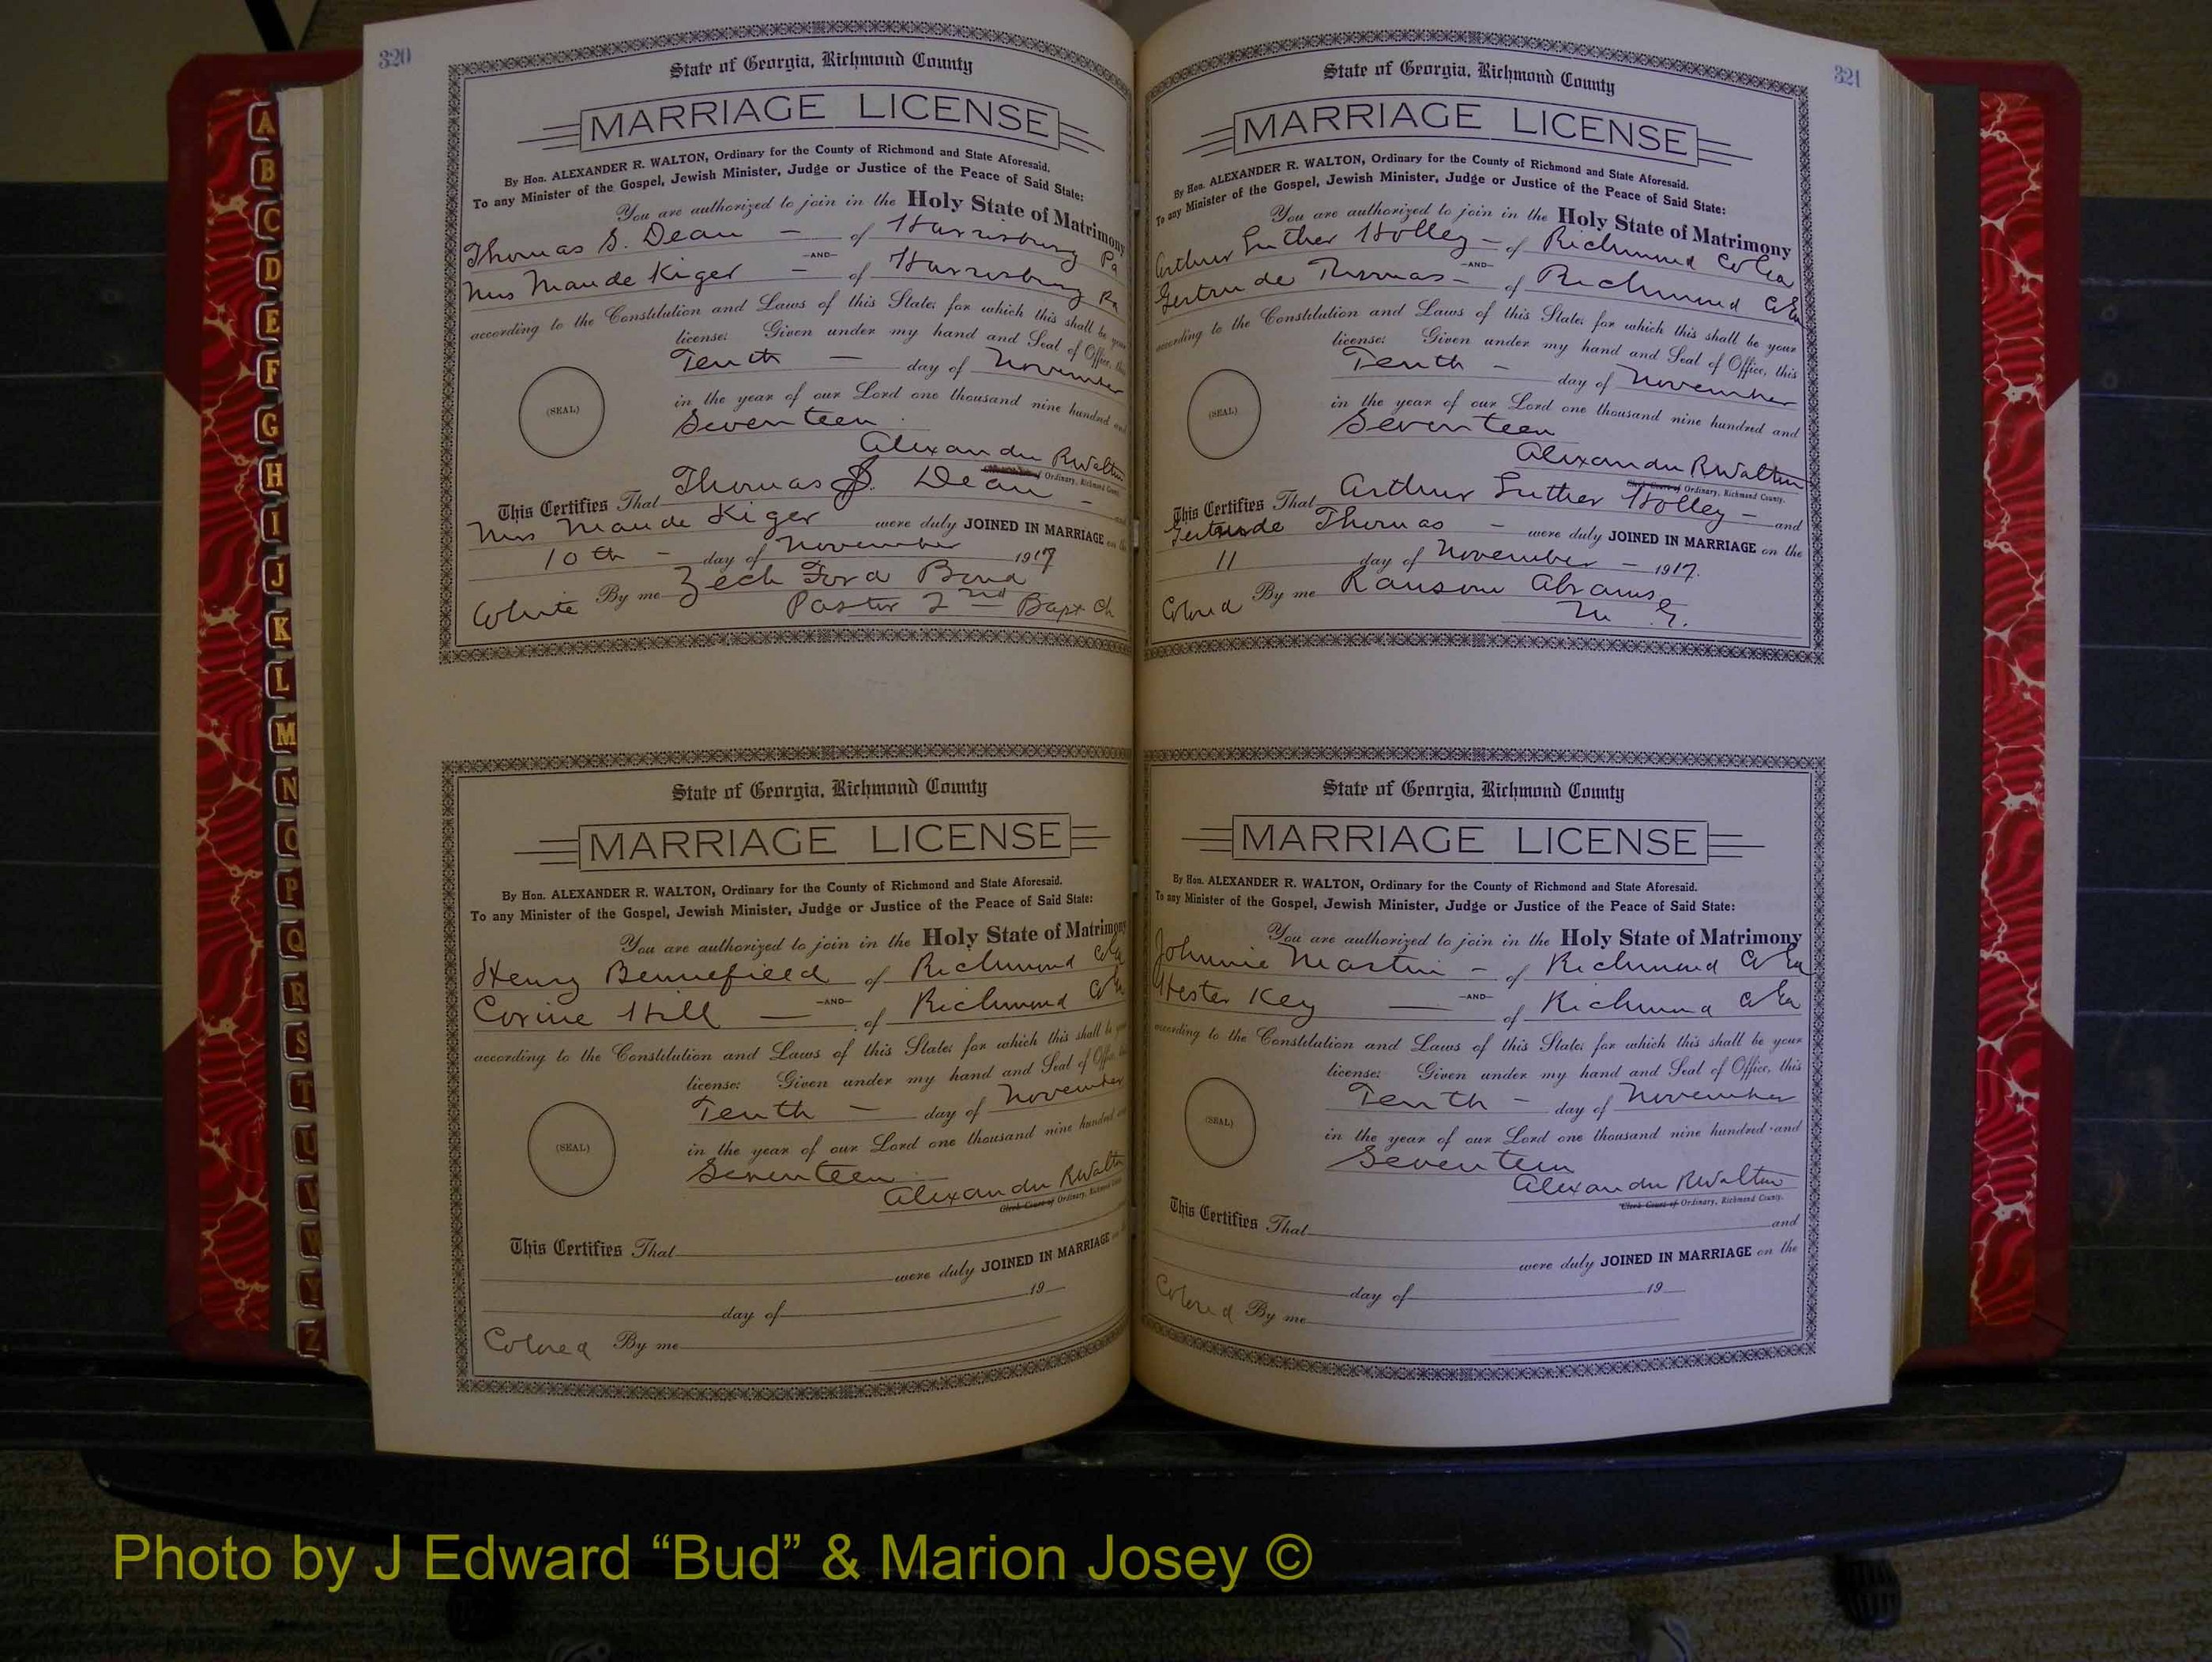 320
State of Georgia, Richmond County
MARRIAGE LICENSE
By Hon. ALEXANDER R. WALTON, Ordinary for the County of Richmond and State Aforesaid.
To any Minister of the Gospel, Jewish Minister, Judge or Justice of the Peace of Said State:
You are authorized to join in the Holy State of Matrimony
Thomas S. Dean — of Harrisburg Pa
—AND—
Mrs Maude Kiger — of Harrisburg Pa
according to the Constitution and Laws of this State; for which this shall be your
license: Given under my hand and Seal of Office, this
Tenth — day of November
(SEAL)
in the year of our Lord one thousand nine hundred and
Seventeen
Alexander R Walton
Ordinary, Richmond County.
This Certifies That Thomas S. Dean — and
Mrs Maude Kiger were duly JOINED IN MARRIAGE on the
10th — day of November 1917
White By me Zech Ford Bond
Pastor 2nd Bapt Ch
State of Georgia, Richmond County
MARRIAGE LICENSE
By Hon. ALEXANDER R. WALTON, Ordinary for the County of Richmond and State Aforesaid.
To any Minister of the Gospel, Jewish Minister, Judge or Justice of the Peace of Said State:
You are authorized to join in the Holy State of Matrimony
Henry Bennefield of Richmond Co Ga
—AND—
Corine Hill — of Richmond Co Ga
according to the Constitution and Laws of this State; for which this shall be your
license: Given under my hand and Seal of Office, this
Tenth — day of November
(SEAL)
in the year of our Lord one thousand nine hundred and
Seventeen
Alexander R Walton
Clerk Court of Ordinary, Richmond County
This Certifies That
were duly JOINED IN MARRIAGE on
day of 19
Colored By me
321
State of Georgia, Richmond County
MARRIAGE LICENSE
By Hon. ALEXANDER R. WALTON, Ordinary for the County of Richmond and State Aforesaid.
To any Minister of the Gospel, Jewish Minister, Judge or Justice of the Peace of Said State:
You are authorized to join in the Holy State of Matrimony
Arthur Luther Holley — of Richmond Co Ga
—AND—
Gertrude Thomas — of Richmond Co Ga
according to the Constitution and Laws of this State; for which this shall be your
license: Given under my hand and Seal of Office, this
Tenth — day of November
(SEAL)
in the year of our Lord one thousand nine hundred and
Seventeen
Alexander R Walton
Clerk Court of Ordinary, Richmond County.
This Certifies That Arthur Luther Holley — and
Gertrude Thomas — were duly JOINED IN MARRIAGE on the
11 day of November — 1917.
Colored By me Ransom Abrams
M G.
State of Georgia, Richmond County
MARRIAGE LICENSE
By Hon. ALEXANDER R. WALTON, Ordinary for the County of Richmond and State Aforesaid.
To any Minister of the Gospel, Jewish Minister, Judge or Justice of the Peace of Said State:
You are authorized to join in the Holy State of Matrimony
Johnnie Martin — of Richmond Co Ga
—AND—
Hester Key — of Richmond Co Ga
according to the Constitution and Laws of this State; for which this shall be your
license: Given under my hand and Seal of Office, this
Tenth — day of November
(SEAL)
in the year of our Lord one thousand nine hundred and
Seventeen
Alexander R Walton
Clerk Court of Ordinary, Richmond County.
This Certifies That and
were duly JOINED IN MARRIAGE on the
day of 19
Colored By me
A
B
C
D
E
F
G
H
I
J
K
L
M
N
O
P
Q
R
S
T
U
V
W
Y
Z
Photo by J Edward “Bud” & Marion Josey ©